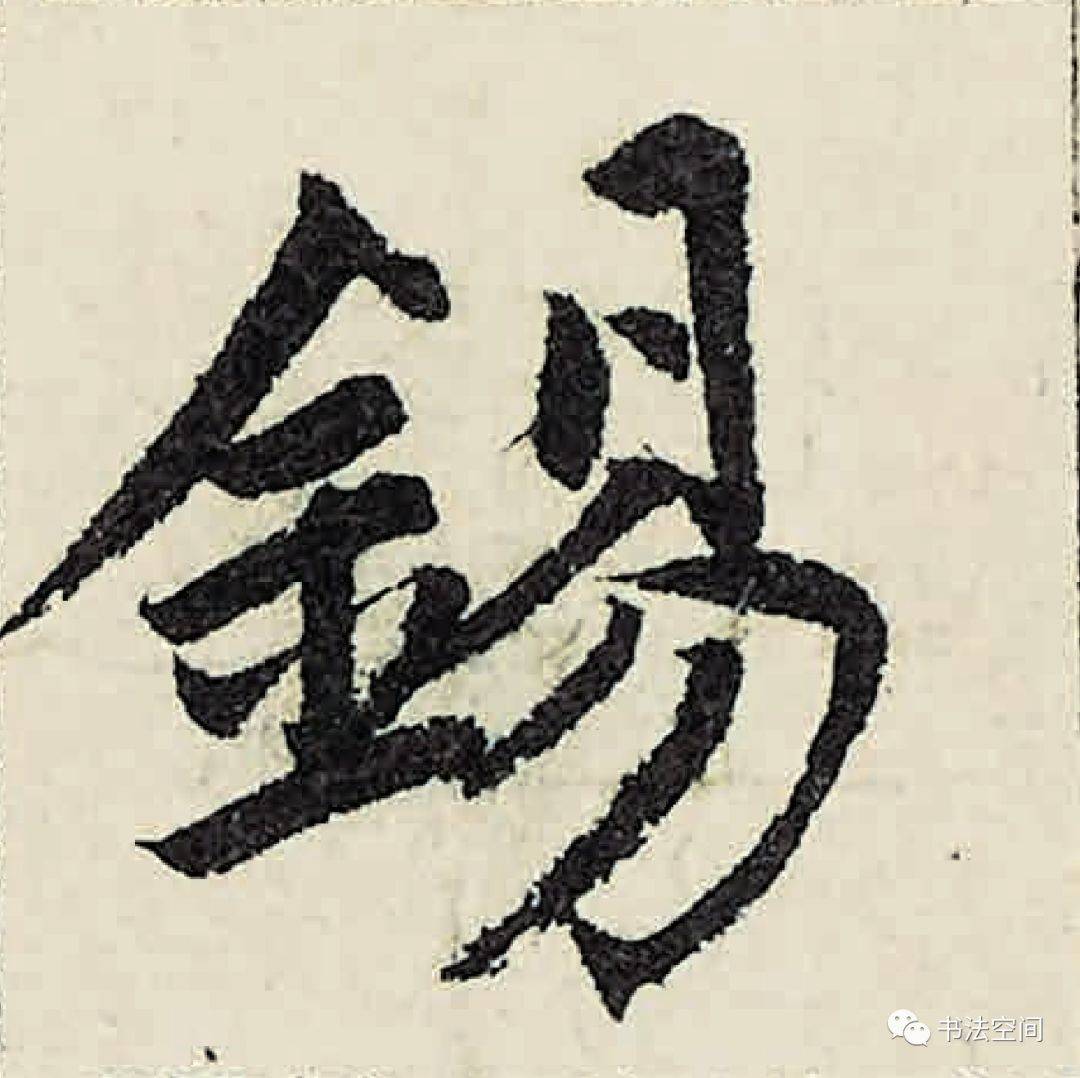 錫
书法空间